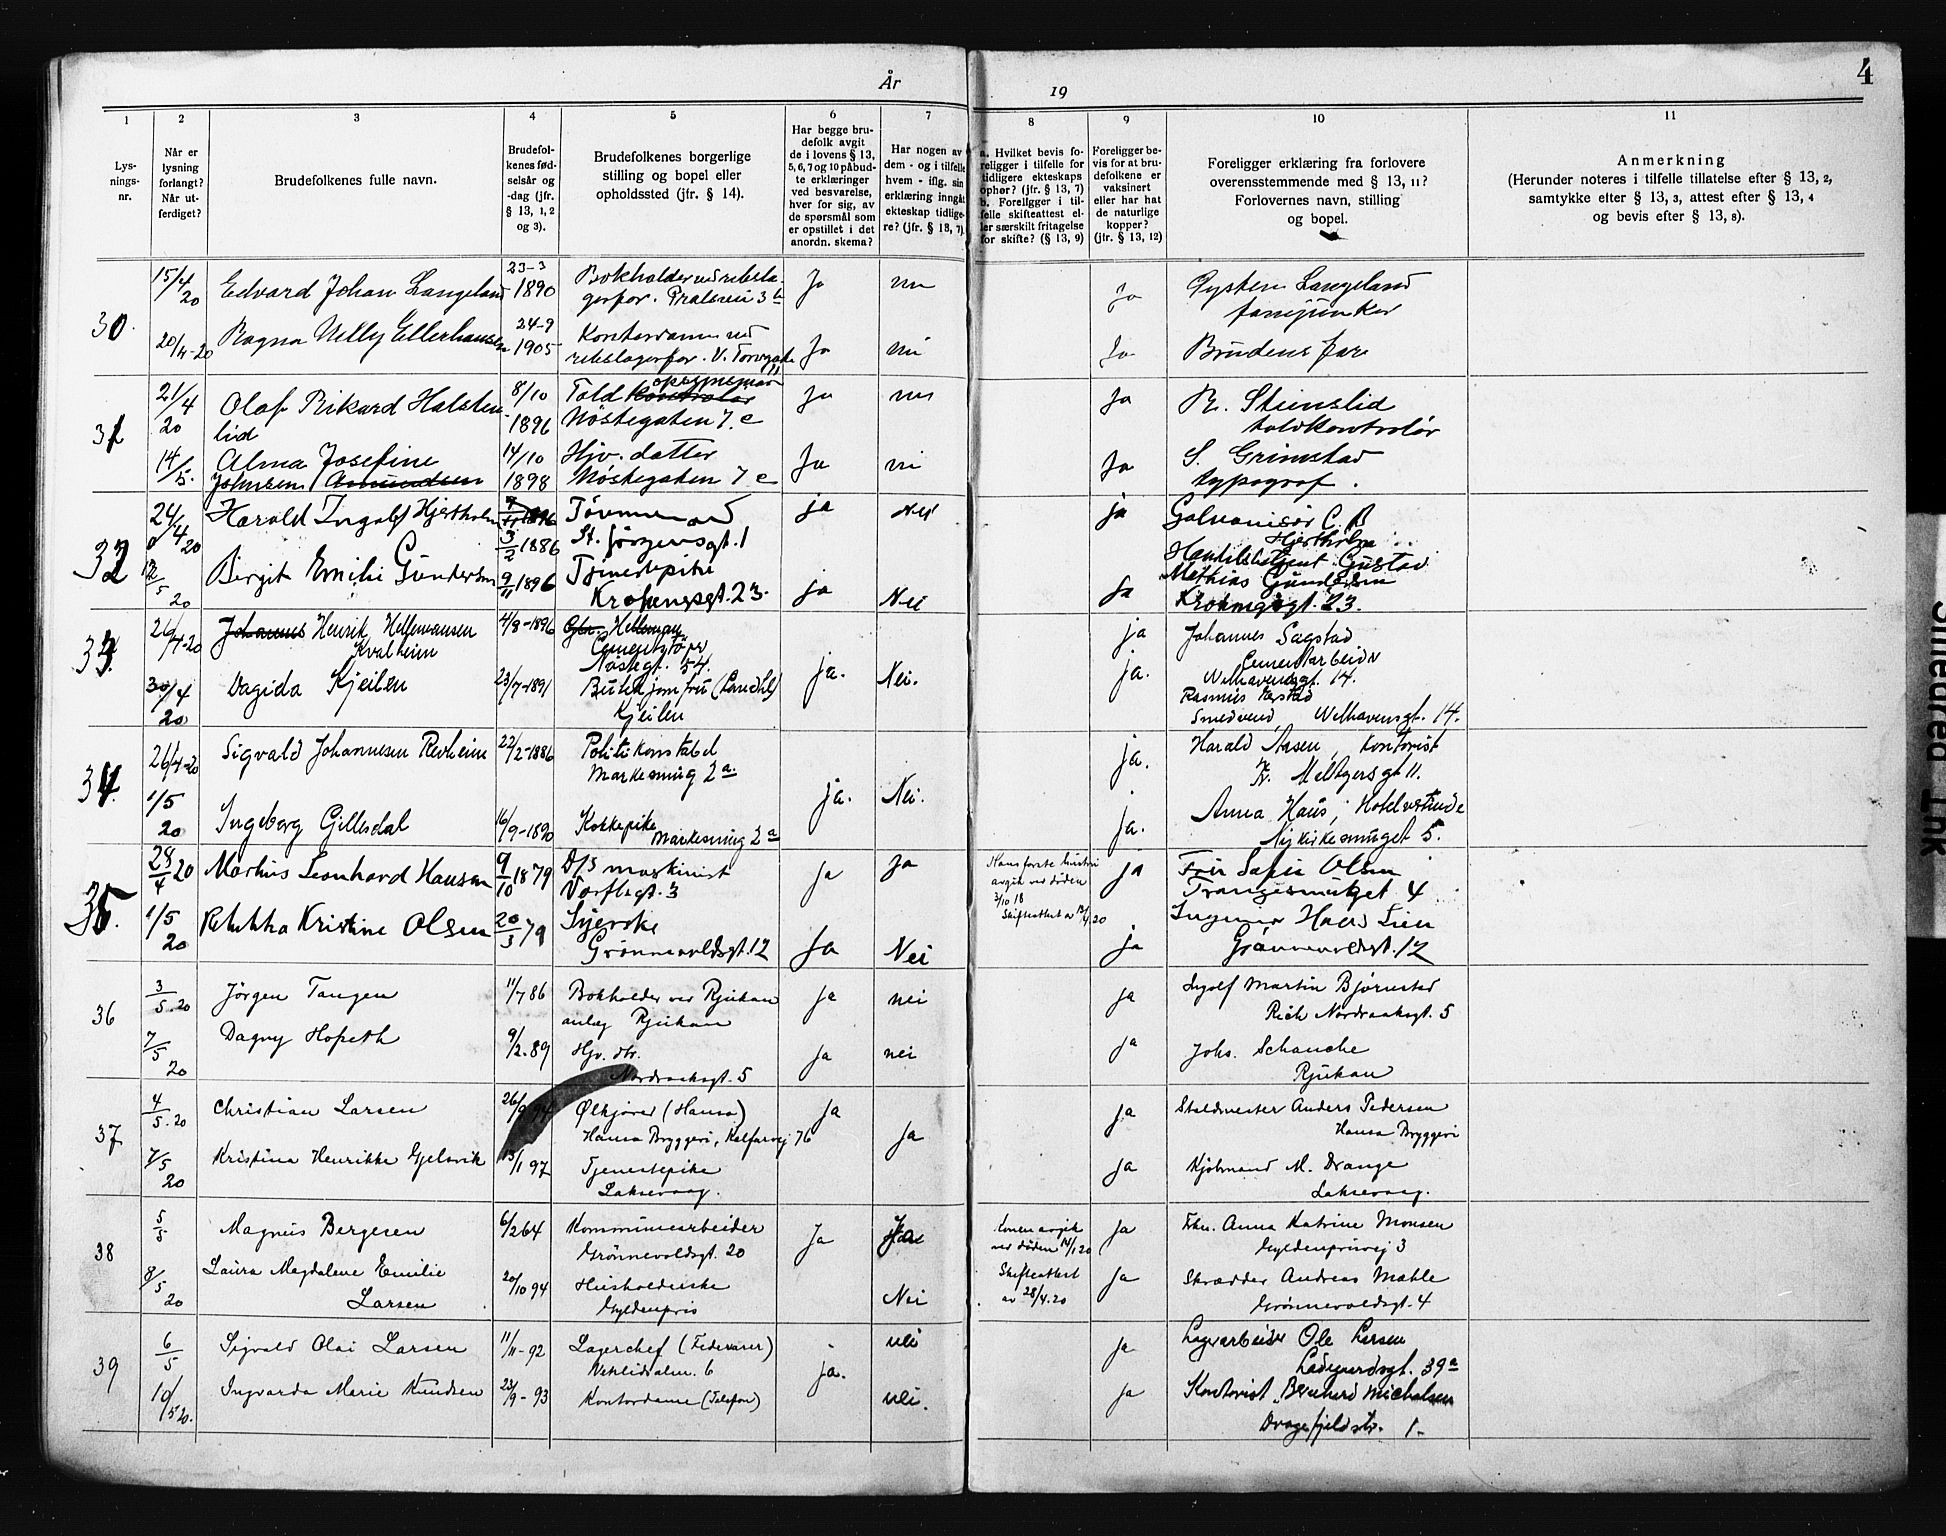 År 19
4
1 2 3 4 5 6 7 8 9 10 11
Lys-
nings-
nr.
Når er
lysning
forlangt?
Når ut-
ferdiget?
Brudefolkenes fulle navn.
Brudefol-
kenes fød-
selsår og
-dag (jfr.
§ 13, 1, 2
og 3).
Brudefolkenes borgerlige
stilling og bopel eller
opholdssted (jfr. § 14).
Har begge bru-
defolk avgit
de i lovens § 13,
5, 6, 7 og 10 påbud-
te erklæringer
ved besvarelse,
hver for sig, av
de spørsmål som
er opstillet i det
anordn. skema?
Har nogen av
dem - og i tilfelle
hvem - iflg. sin
erklæring inngåt
ekteskap tidlige-
re? (jfr. § 13, 7)
a. Hvilket bevis fo-
religger i tilfelle for
tidligere ekteskaps
ophør? (jfr. § 13, 7)
b. Foreligger i til-
felle skifteattest el-
ler særskilt fritagelse
for skifte? (§ 13, 9)
Foreligger be-
vis for at bru-
defolkene er
vaksinert
eller har hat
de naturlige
kopper?
(jfr. § 13, 12)
Foreligger erklæring fra forlovere
overensstemmende med § 13, 11?
Forlovernes navn, stilling
og bopel.
Anmerkning
(Herunder noteres i tilfelle tillatelse efter § 13, 2,
samtykke efter § 13, 3, attest efter § 13, 4
og bevis efter § 13, 8).
30.
15/4 20 Edvard Johan Langeland 23-3 1890 Bokholder ved rebsla-
gerfor. 3 b Ja nei Ja Øystein Langeland
fanejunker
20/4-20 Ragna Nelly Ellerhausen 24-9 1905 Kontordame ved
rebslagerfor. V. Torvgate Ja nei Ja Brudens far
31
21/4 20 Olaf Rikard Halsten-
lid 8/10 1896 Told kontrolør
Nøstegaten 7 c Ja nei Ja R. Steinslid
toldkontrolør
14/5. Alma Josefine
Johnsen Amundsen 14/10 1898 Hjv. datter
Nøstegaten 7 c Ja nei Ja S. Grimstad
typograf.
32
24/4 20 Harald Ingolf Hjertholm 3/2 1886 Tövmand
St. Jörgensgt. 1 ja Nei ja Galvanisör C. B
Hjertholm
12/5 20 Birgit Emilie Gundersen 9/11 1896 Tjenestepike
Krohnengsgt. 23. ja Nei Ja Handelsbetjent Gustav
Mathias Gundersen
Krohnengsgt. 23.
33.
26/4-20 Johannes Henrik Hellemansen
Kvalheim 4/8-1896 Gbr. Helleman
Cementstöper
Nöstegt. 54. ja. Nei. ja Johannes Sagstad
Cementarbeider
Welhavensgt. 14.
30/4 20 Dagida Kjeilen 23/7-1891 Butikjomfru (Landhl)
Kjeilen ja. Rasmus
Smedsvend, Welhavensgt. 14.
34.
26/4-20 Sigvald Johannesen Revheim 22/2-1886 Politikonstabel
Markesmug 2 a. ja. Nei. ja. Harald Aasen, Kontorist
Fr. Meltzersgt 11.
1/5 20 Ingeborg Gillesdal 16/9-1890 Kokkepike
Markesmug 2 a ja. Anna Haus, Hotelvertinde
Nykirkesmuget 5.
35.
28/4 20 Martius Leonhard Hansen 9/10 1879 D/S maskinist
3 ja ja Hans første hustru
avgik ved døden
3/10 18
Skifteattest av 13/4 20 ja Fru Sofie Olsen
Trangesmuget 4
1/5 20 Rebekka Kristine Olsen 20/3 79 Syerske
Grönnevoldsgt. 12 Ja Nei ja Ingeniør Hans Lien
Grönnevoldsgt. 12
36
3/5.20 Jörgen Tangen 11/7 86 Bokholder ved Rjukan
anlæg Rjukan Ja nei Ja Ingolf Martin Bjørnestad
Rich Nordraaksgt. 5
7/5 20 Dagny Hopseth 9/2.89 Hjv. dtr.
Nordraaksgt. 5 Ja nei Ja Johs. Schanche
Rjukan
37
4/5.20 Christian Larsen 26/9 94 Ølkjører (Hansa)
Hansa Bryggeri, Kalfarvej 76 Ja Ja Ja Staldmester Anders Pedersen
Hansa Bryggeri
7/5 20 Kristina Henrikke Gjelsvik 13/1 97 Tjenestepike
Laksevaag. Ja Kjøbmand M. Drange
Laksevaag.
38
5/5 Magnus Bergesen 6/2 64 Kommunearbeider
Grönnevoldsgt. 20 Ja Ja Konen avgik
ved døden 14/1 20 Ja Frkn. Anna Katrine Monsen
Gyldenprisvej 3
8/5 20 Laura Magdalene Emilie
Larsen 20/10 94 Husholderske
Gyldenpris Nei Skifteattest
av 28/4.20 Ja Skrædder Andreas Mæhle
Grönnevoldsgt. 4
39
6/5 Sigvald Olai Larsen 11/11-92 Lagerchef (Fedevarer)
6 ja. nei ja Lagerarbeider Ole Larsen
Ladegaardsgt. 39 a
10/5 20. Ingvarda Marie Knudsen 23/9-93 Kontordame (Telefon) nei. Ja Kontorist Bernhard Michalsen
Dragefjeldstr. 1.